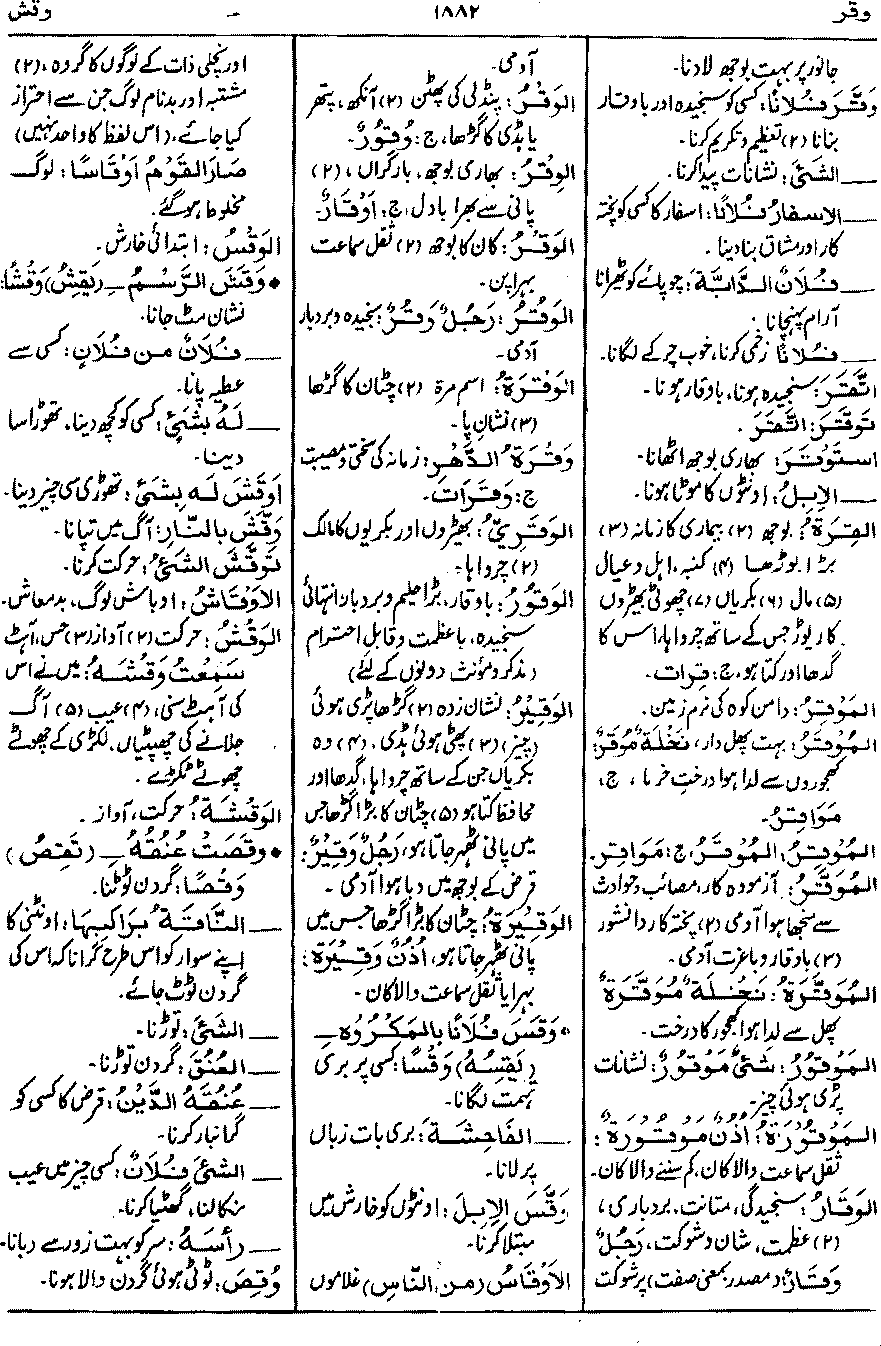 وقر
١٨٨٢
وقش
جانور پر بہت بوجھ لادنا۔
وَقَّرَ فُلَانًا: کسی کو سنجیدہ اور باوقار
بنانا (۲) تعظیم و تکریم کرنا۔
ــــ الشَّیْءَ: نشانات پیدا کرنا۔
ــــ الاسفارُ فُلَانًا: اسفار کا کسی کو پختہ
کار اور مشاق بنا دینا۔
ــــ فُلَانٌ الدَّابَّةَ: چوپائے کو ٹھیرانا
آرام پہنچانا۔
ــــ فُلَانًا زخمی کرنا، خوب چرکے لگانا۔
اتَّقَرَ: سنجیدہ ہونا، باوقار ہونا۔
تَوَقَّرَ: اتَّقَرَ۔
استَوْقَرَ: بھاری بوجھ اٹھانا۔
ــــ الإبِلُ: اونٹوں کا موٹا ہونا۔
القِرَةُ: بوجھ (۲) بیماری کا زمانہ (۳)
بڑا بوڑھا (۴) کنبہ، اہل و عیال
(۵) مال (۶) بکریاں (۷) چھوٹی بھیڑوں
کا ریوڑ جس کے ساتھ چرواہا، اس کا
گدھا اور کتا ہو، ج: قِرات۔
المَوْقِرُ: دامن کوہ کی نرم زمین۔
المُوقَرُ: بہت پھل دار، نَخْلَةٌ مُوقَرٌ:
کھجوروں سے لدا ہوا درختِ خرما، ج:
مَوَاقِرُ۔
المُوقِرُ: المُوقَرُ، ج: مَوَاقِر۔
المُوَقَّرُ: آزمودہ کار، مصائب و حوادث
سے سنجھا ہوا آدمی (۲) پختہ کار دانشور
(۳) باوقار و باعزت آدمی۔
المُوَقَّرَةُ: نَخْلَةٌ مُوَقَّرَةٌ
پھل سے لدا ہوا کھجور کا درخت۔
المَوْقُورُ: شَیْءٌ مَوْقُورٌ: نشانات
پڑی ہوئی چیز۔
المَوْقُورَةُ: أُذُنٌ مَوْقُورَةٌ:
ثقل سماعت والا کان، کم سننے والا کان۔
الوَقَارُ: سنجیدگی، متانت، بردباری،
(۲) عظمت، شان و شوکت، رَجُلٌ
وَقَارٌ (مصدر بمعنی صفت) پر شوکت
آدمی۔
الوَقْرُ: پنڈلی کی پھٹن (۲) آنکھ، پتھر
یا ہڈی کا گڑھا، ج: وُقُورٌ۔
الوِقْرُ: بھاری بوجھ، بار گراں، (۲)
پانی سے بھرا بادل، ج: أَوْقَارٌ۔
الوَقْرُ: کان کا بوجھ (۲) ثقل سماعت
بہرا پن۔
الوَقُرُ: رَجُلٌ وَقُرٌ: سنجیدہ و بردبار
آدمی۔
الوَقْرَةُ: اسم مرة (۲) چٹان کا گڑھا
(۳) نشانِ پا۔
وَقْرَةُ الدَّهْرِ: زمانہ کی سختی و مصیبت
ج: وَقَرَات۔
الوَقَرِیُّ: بھیڑوں اور بکریوں کا مالک
(۲) چرواہا۔
الوَقُورُ: باوقار، بڑا حلیم و بردبار، انتہائی
سنجیدہ، باعظمت و قابل احترام
(مذکر و مؤنث دونوں کے لئے)
الوَقِیرُ: نشان زدہ (۲) گڑھا پڑی ہوئی
(چیز) (۳) پھٹی ہوئی ہڈی۔ (۴) وہ
بکریاں جن کے ساتھ چرواہا، گدھا اور
محافظ کتا ہو (۵) چٹان کا بڑا گڑھا جس
میں پانی ٹھہر جاتا ہو، رَجُلٌ وَقِیرٌ:
قرض کے بوجھ میں دبا ہوا آدمی۔
الوَقِیرَةُ: چٹان کا بڑا گڑھا جس میں
پانی ٹھہر جاتا ہو، أُذُنٌ وَقِیرَةٌ:
بہرا یا ثقل سماعت والا کان۔
• وَقَسَ فُلَانًا بالمَکْرُوهِ ــ
(یَقِسُهُ) وَقْسًا: کسی پر بری
تہمت لگانا۔
ــــ الفَاحِشَةَ: بری بات زبان
پر لانا۔
وَقَّسَ الإبِلَ: اونٹوں کو خارش میں
مبتلا کرنا۔
الأَوْقَاسُ (من النَّاسِ) غلاموں
اور نچلی ذات کے لوگوں کا گروہ، (۲)
مشتبہ اور بدنام لوگ جن سے احتراز
کیا جائے، (اس لفظ کا واحد نہیں)
صَارَ القَوْمُ أَوْقَاسًا: لوگ
مخلوط ہو گئے۔
الوَقْسُ: ابتدائی خارش۔
• وَقَشَ الرَّسْمُ ــ (یَقِشُ) وَقْشًا:
نشان مٹ جانا۔
ــــ فُلَانٌ من فُلَانٍ: کسی سے
عطیہ پانا۔
ــــ لَهُ بشَیْءٍ: کسی کو کچھ دینا، تھوڑا سا
دینا۔
أَوْقَشَ لَه بِشَیْءٍ: تھوڑی سی چیز دینا۔
وَقَّشَ بالنَّارِ: آگ میں تپانا۔
تَوَقَّشَ الشَّیْءُ: حرکت کرنا۔
الأَوْقَاشُ: اوباش لوگ، بدمعاش۔
الوَقْشُ: حرکت (۲) آواز (۳) حس، آہٹ
سَمِعْتُ وَقْشَهُ: میں نے اس
کی آہٹ سنی، (۴) عیب (۵) آگ
جلانے کی چھپٹیاں، لکڑی کے چھوٹے
چھوٹے ٹکڑے۔
الوَقْشَةُ: حرکت، آواز۔
• وَقَصَتْ عُنُقُهُ ــ (تَقِصُ)
وَقْصًا: گردن ٹوٹنا۔
ــــ النَّاقَةُ بِرَاکِبِها: اونٹنی کا
اپنے سوار کو اس طرح گرانا کہ اس کی
گردن ٹوٹ جائے۔
ــــ الشَّیْءَ: توڑنا۔
ــــ العُنُقَ: گردن توڑنا۔
ــــ عُنُقَهُ الدَّیْنُ: قرض کا کسی کو
گراں بار کرنا۔
ــــ الشَّیْءَ فُلَانٌ: کسی چیز میں عیب
نکالنا، گھٹیا کرنا۔
ــــ رأسَهُ: سر کو بہت زور سے دبانا۔
وُقِصَ: ٹوٹی ہوئی گردن والا ہونا۔